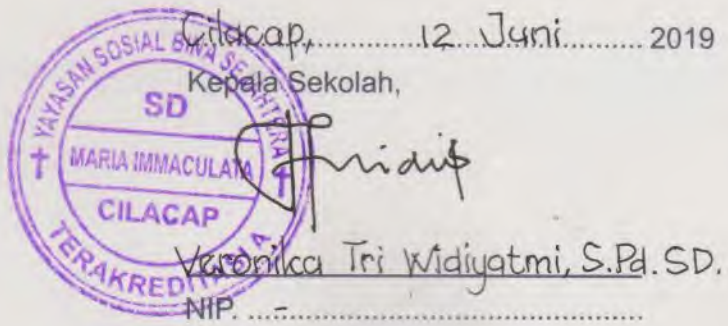 Cilacap, ............... 12 Juni ......... 2019
Kepala Sekolah,
YAYASAN SOSIAL BINA SEJAHTERA
SD
MARIA IMMACULATA
CILACAP
TERAKREDITASI A
Veronika Tri Widiyatmi, S.Pd. SD.
NIP. ...-...............................................